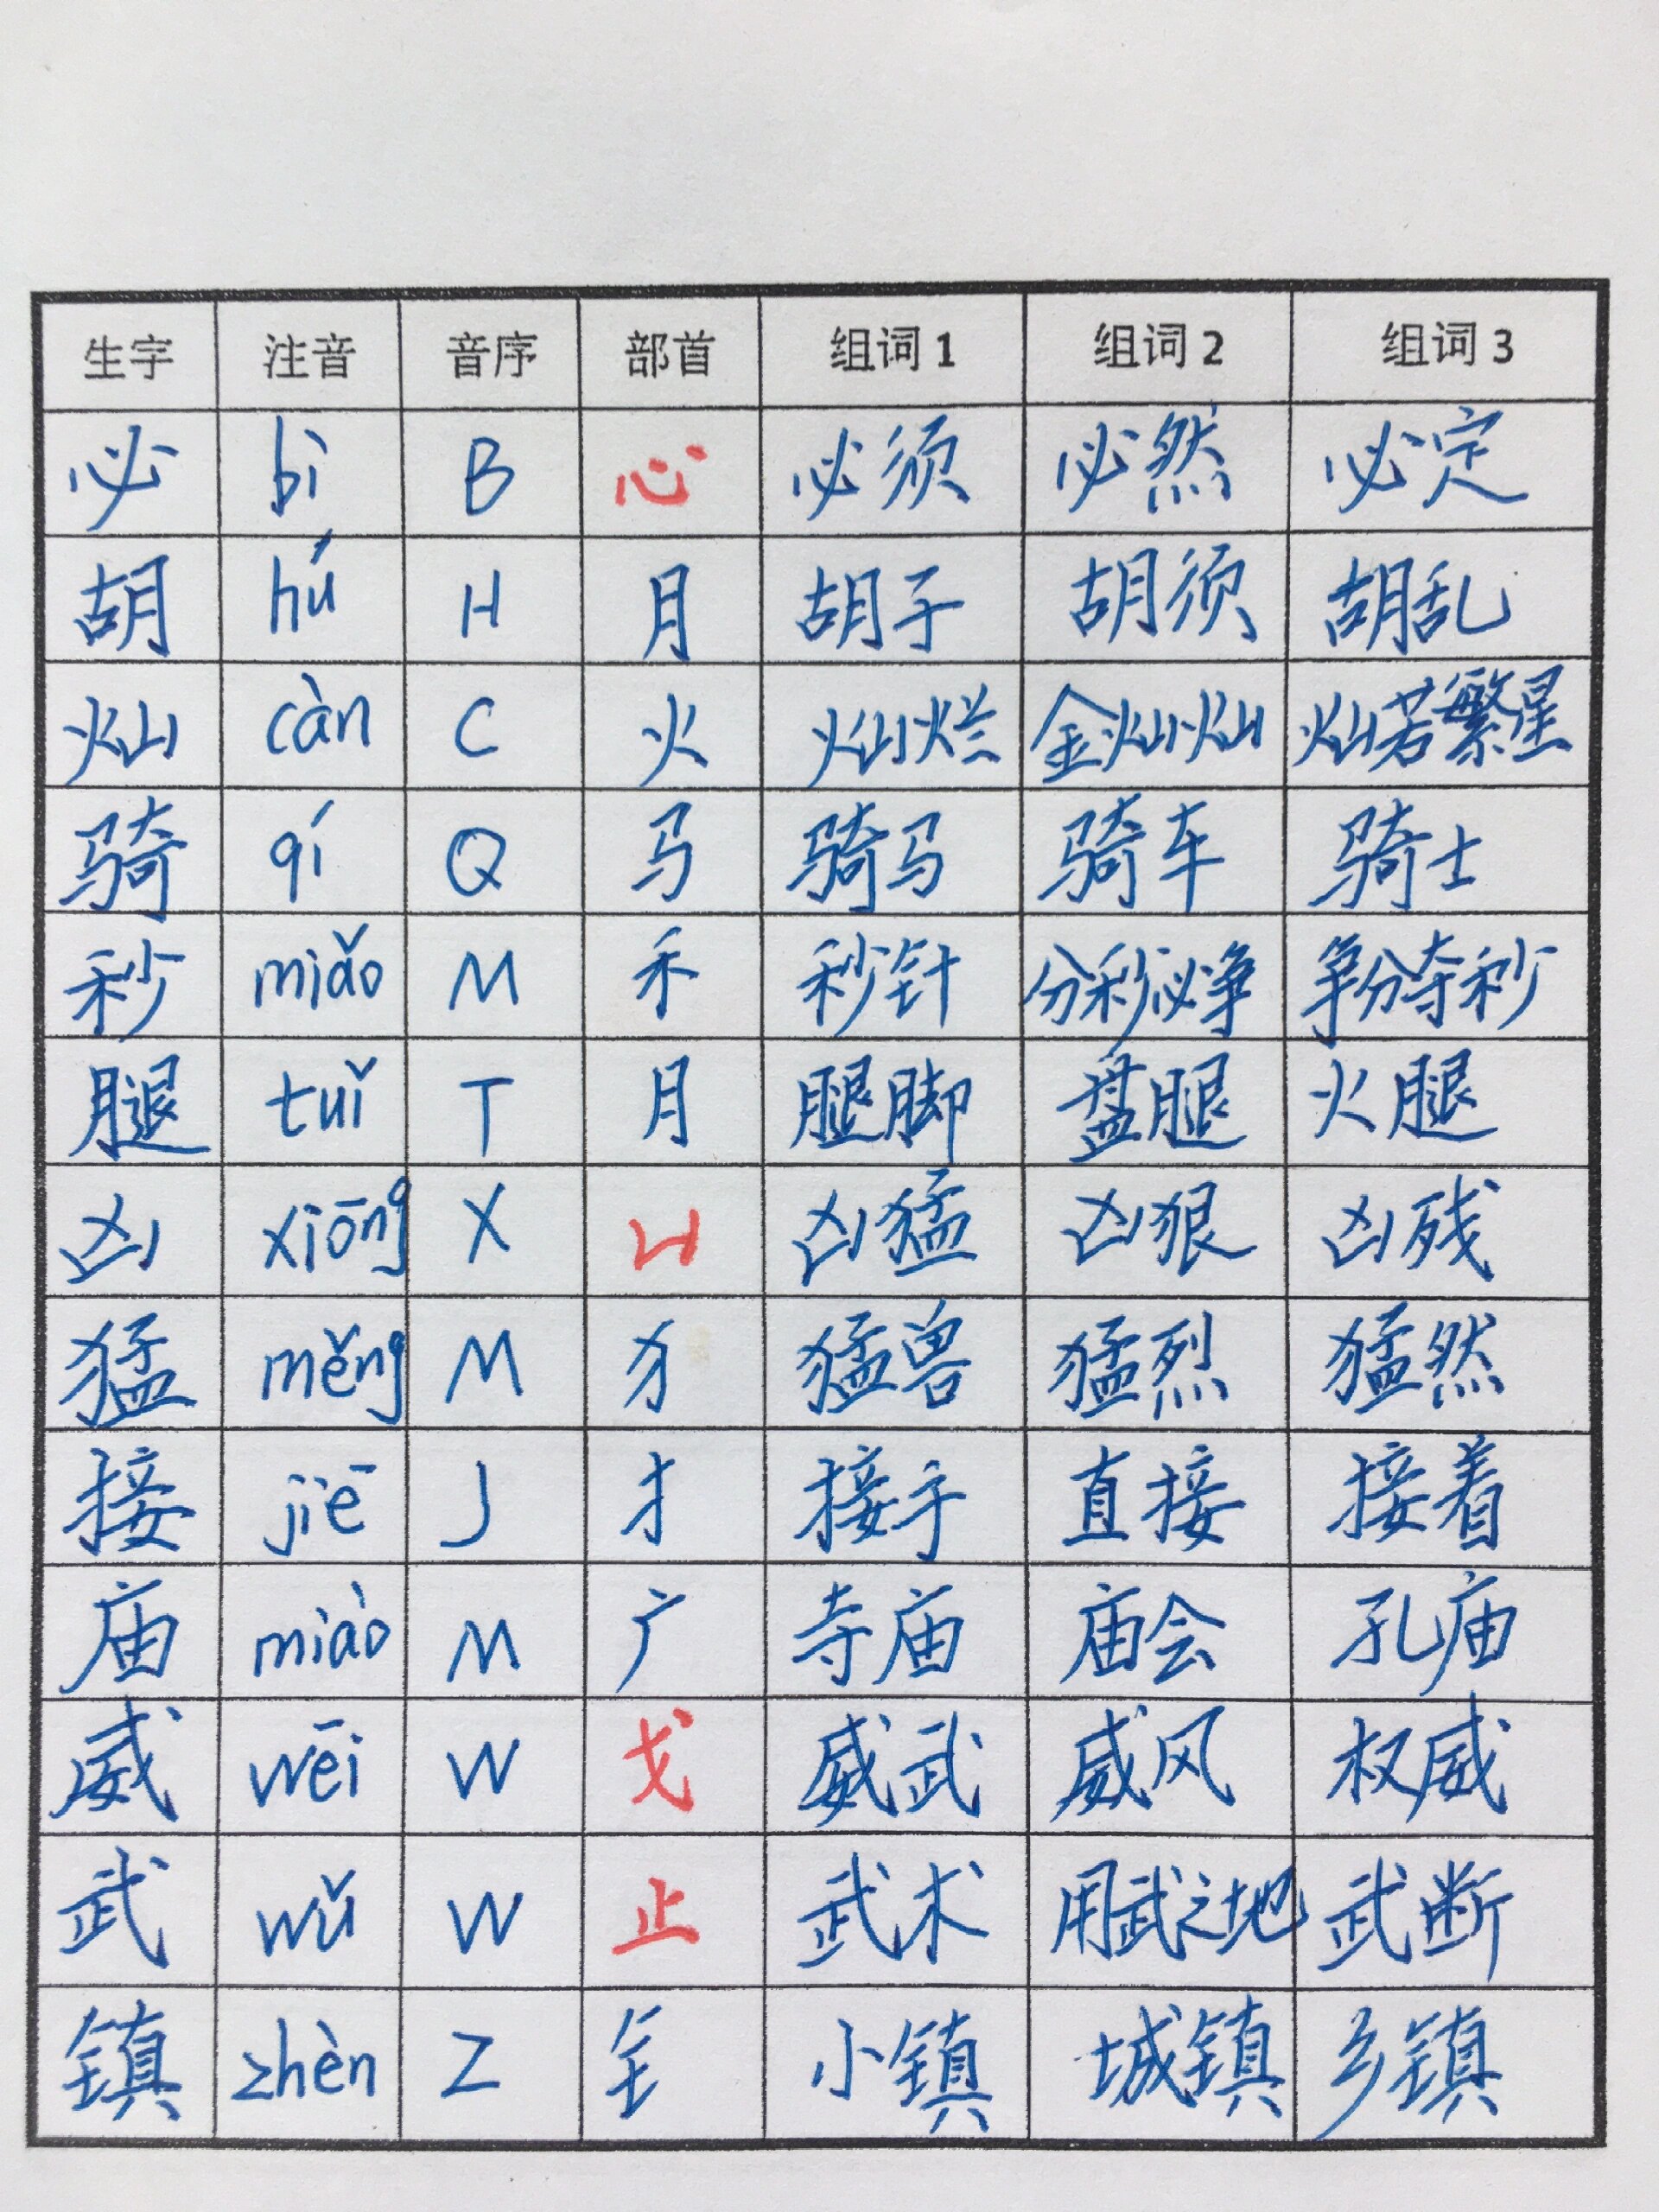 生字 注音 音序 部首 组词1 组词2 组词3
必 bì B 心 必须 必然 必定
胡 hú H 月 胡子 胡须 胡乱
灿 càn C 火 灿烂 金灿灿 灿若繁星
骑 qí Q 马 骑马 骑车 骑士
秒 miǎo M 禾 秒针 分秒必争 争分夺秒
腿 tuǐ T 月 腿脚 盘腿 火腿
凶 xiōng X 凵 凶猛 凶狠 凶残
猛 měng M 犭 猛兽 猛烈 猛然
接 jiē J 扌 接手 直接 接着
庙 miào M 广 寺庙 庙会 孔庙
威 wēi W 戈 威武 威风 权威
武 wǔ W 止 武术 用武之地 武断
镇 zhèn Z 钅 小镇 城镇 乡镇